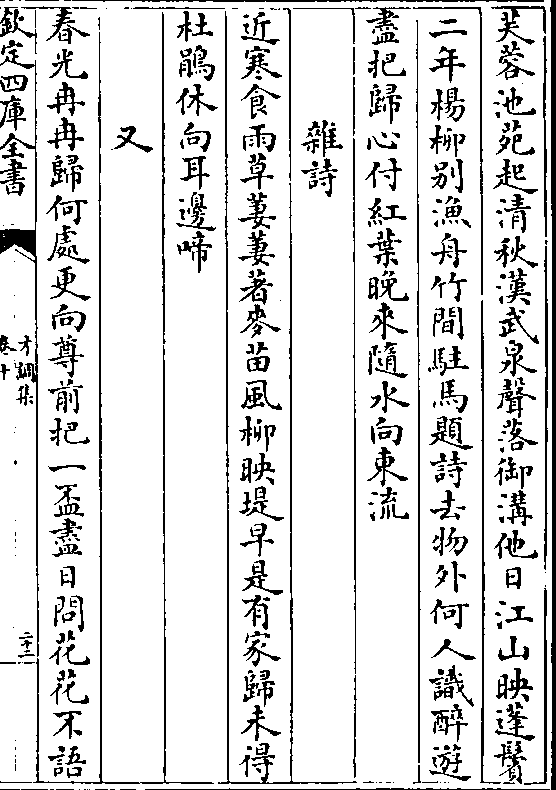 芙蓉池苑起清秋漢武泉聲落御溝他日江山映蓬鬢
二年楊柳别漁舟竹間駐馬題詩去物外何人識醉遊
盡把歸心付紅葉晚來隨水向東流
雜詩
近寒食雨草萋萋著麥苗風柳映堤早是有家歸未得
杜鵑休向耳邊啼
又
春光冉冉歸何處更向尊前把一盃盡日問花花不語
欽定四庫全書
才調集
卷十
二十二